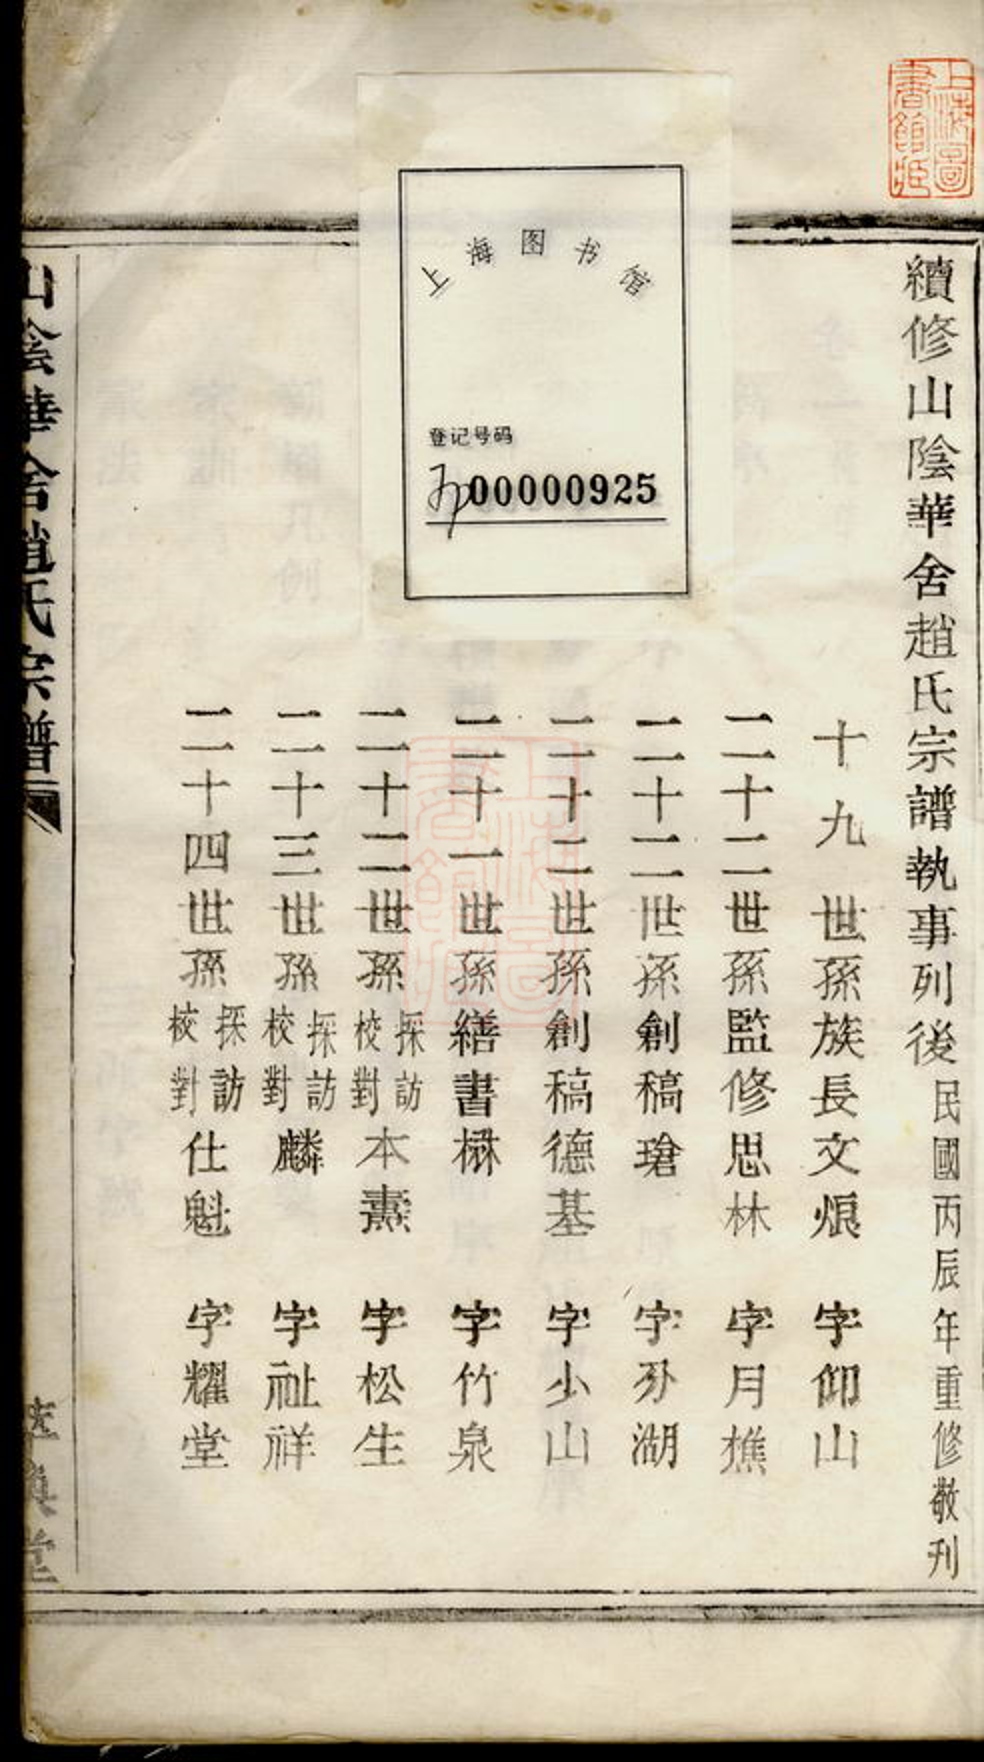 續修山陰華舍趙氏宗譜執事列後 民國丙辰年重修敬刊
十九世孫族長文烺 字仰山
二十二世孫監修思林 字月樵
二十二世孫創稿瑲 字芬湖
二十二世孫創稿德基 字少山
二十一世孫繕書楙 字竹泉
二十二世孫採訪校對本燾 字松生
二十三世孫採訪校對麟 字祉祥
二十四世孫採訪校對仕魁 字耀堂
山陰華舍趙氏宗譜
萃渙堂
上海图书馆
登记号码
00000925
上海圖書館藏
上海圖書館藏